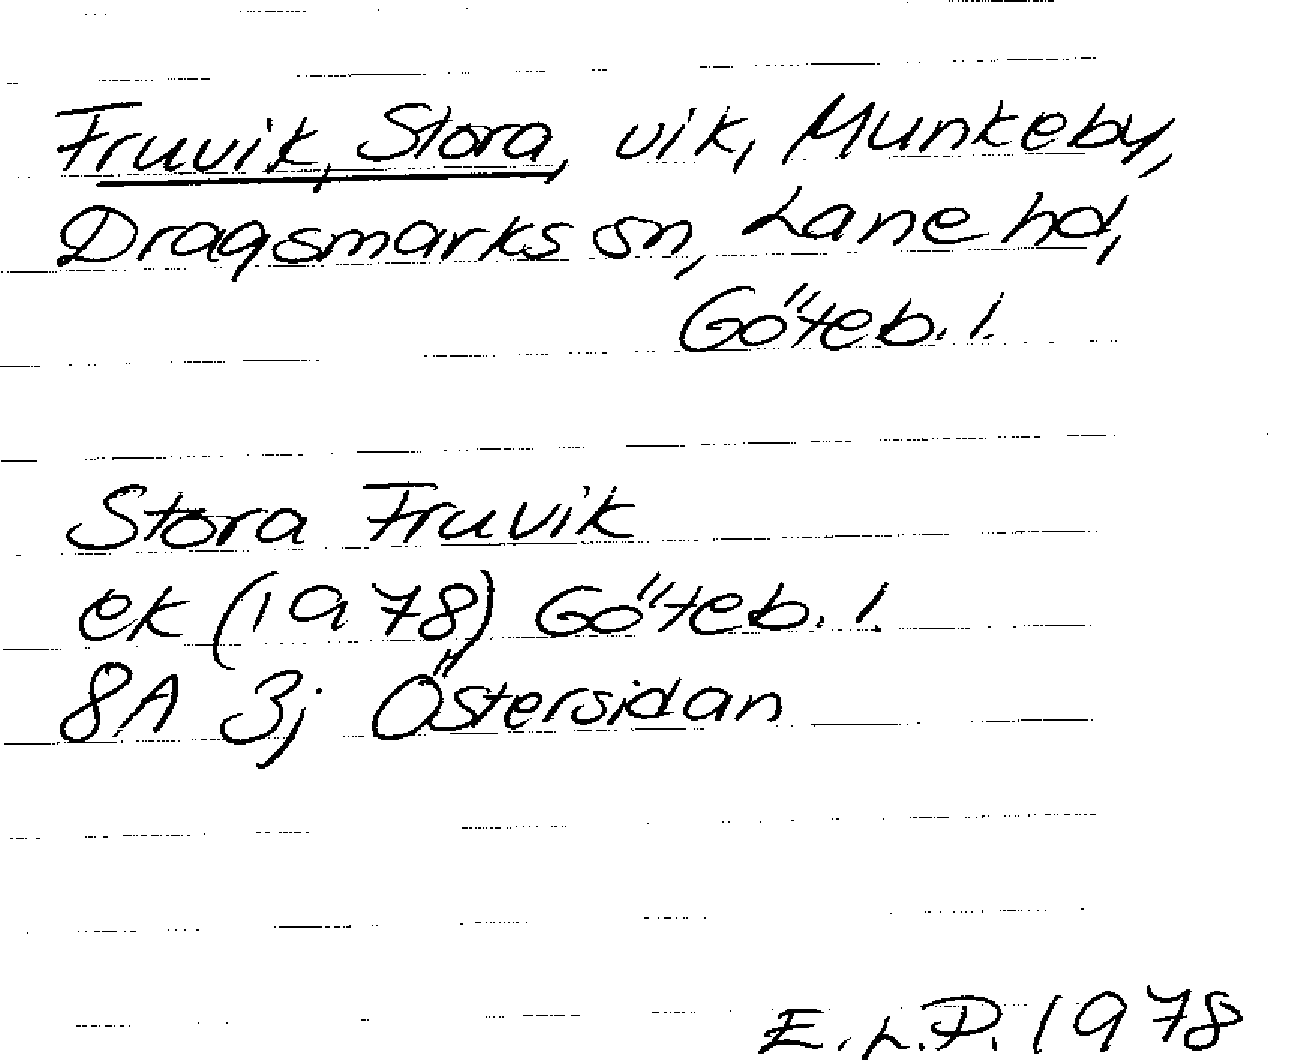 Fruvik, Stora, vik, Munkeby,
Dragsmarks sn, Lane hd,
Göteb. l.
Stora Fruvik
ek (1978) Göteb. l.
8A 3j Östersidan
E.L.P. 1978